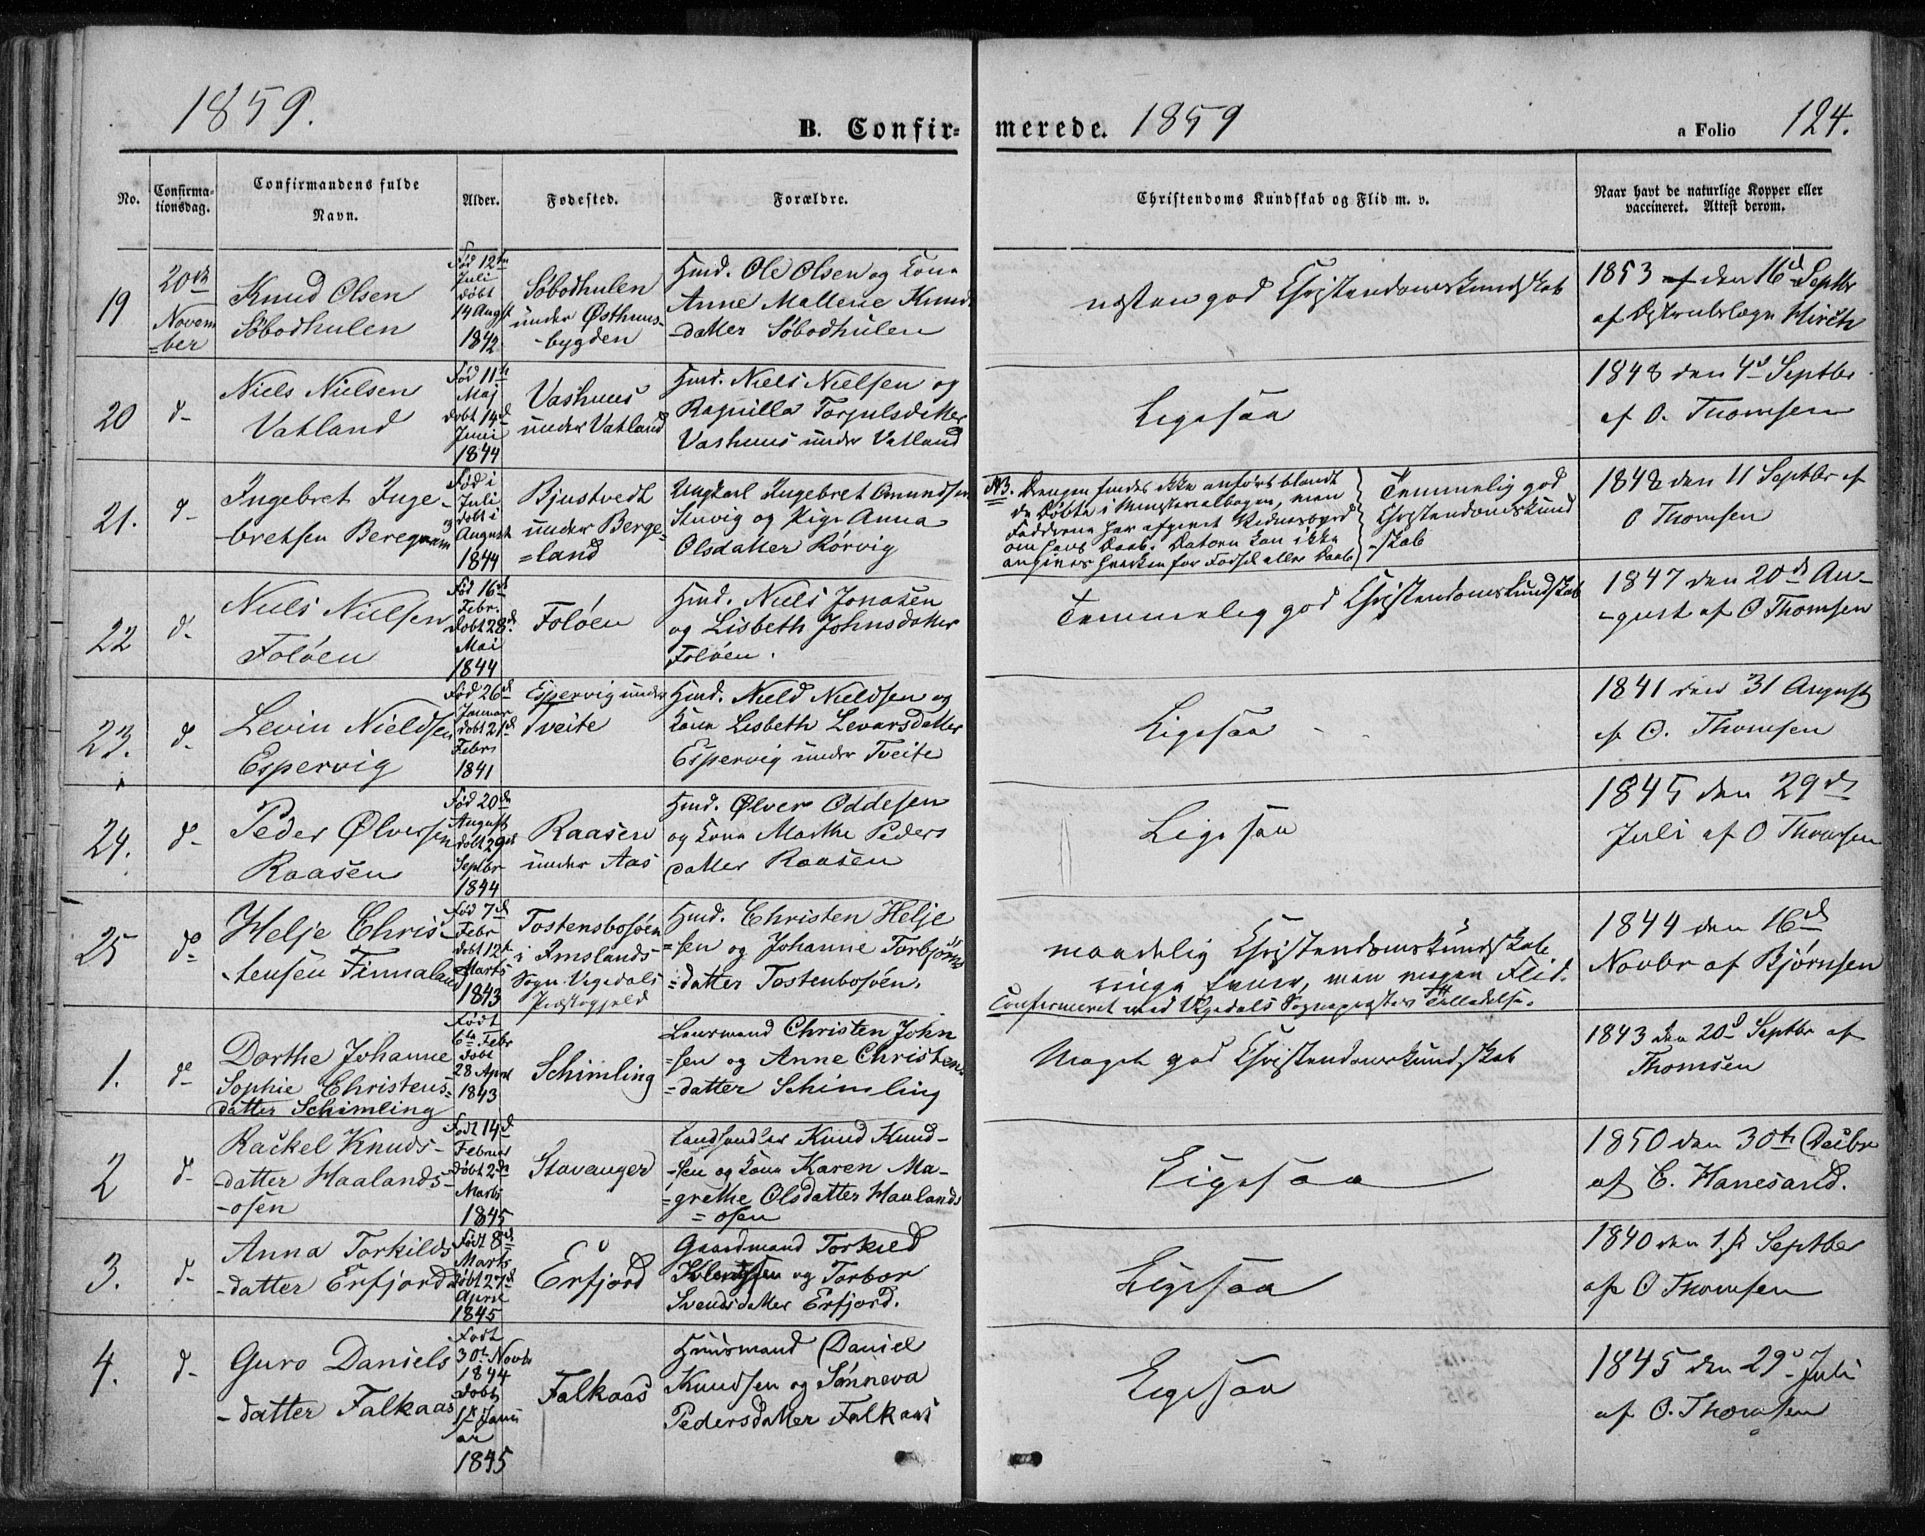 1859.
B. Confir=
merede. 1859
a Folio 124.
No.
Confirma-
tionsdag.
Confirmandens fulde
Navn.
Alder.
Fødested.
Forældre.
Christendoms Kundskab og Flid m. v.
Naar havt de naturlige Kopper eller
vaccineret. Attest derom.
19
20de
Novem
=ber
Knud Olsen
Søbodhulen
Fød 12te
Juli
døbt
14 Augst
1842
Søbodhulen
under Østhuus-
-bygden
Huusmd. Ole Olsen og Kona
Anne Mallene Knuds
-datter Søbodhulen
næsten god Christendomskundskab
1853 den 16d Septbr
af Districtslæge Hirsch
20
d-
Niels Nielsen
Vatland
Fød 11te
Maj
døbt 14d
Juni
1844
Vashuus
under Vatland
Hmd. Niels Nielsen og
Ragnilla Torjulsdatter
Vashuus under Vatland
Ligesaa
1848 den 4d Septbr
af O. Thomsen
21.
d-
Ingebret Inge-
-bretsen Beregram
Fød i
Juli
døbt i
August
1844
Bjustvedt
under Berge-
=land
Ungkarl Ingebret Amundsen
Stuvig og Pige Anna
Olsdatter Rørvig
NB. Drengen findes ikke anført blandt
de Døbte i Ministerialbogen, men
Fadderne har afgivet Vidnesbyrd
om hans Daab. Datoen kan ikke
angives hverken for Fødsel eller Daab
Temmelig god
Christendomskund
-skab
1848 den 11 Septbr af
O Thomsen
22
d.
Niels Nielsen
Foløen
Fød 16d
Febr.
døbt 28d.
Mai
1844
Foløen
Hmd. Niels Jonasen
og Lisbeth Johnsdatter
Foløen.
Temmelig god Christendomskundskab
1847 den 20d Au-
-gust af O Thomsen
23.
d.
Levin Nieldsen
Espervig
Fød 26d
Januar
døbt 21d
Febr
1841
Espervig under
Tveite
Hmd. Nield Nieldsen og
Kona Lisbeth Levarsdatter
Espervig under Tveite
Ligesaa
1841 den 31 August
af O. Thomsen
24.
d-
Peder Ølversen
Raasen
Fød 20de
August
døbt 29de
Septbr
1844
Raasen
under Aas
Hmd. Ølver Oddesen
og Kona Marthe Peders
datter Raasen
Ligesaa
1845 den 29d
Juli af O Thomsen
25
do
Helje Chris-
-tensen Finnaland
Fød 7d
Febr
døbt 12te
Marts
1843
Tostensbosøen
i Imslands
Sogn Vigedals
Præstegjeld
Hmd. Christen Helje
=sen og Johanne Torbjørns
=datter Tostenbosøen
maadelig Christendomskundskab
ringe Evner, men megen Flid.
Confirmeret med Vigedals Sognepræstes Tilladelse.
1844 den 16d
Novbr af Bjørnsen
1.
do
Dorthe Johanne
Sophie Christens=
datter Schimling
Født
6te Febr
døbt
28 April
1843
Schimling
Leiermand Christen John
=sen og Anne Christens
=datter Schimling
Meget god Christendomskundskab
1843 den 20d Septbr af
Thomsen
2
d-
Rackel Knuds-
-datter Haalands-
-osen
Født 14d
Februar
døbt 2de
Marts
1845
Stavanger
Landhandler Knud Knud-
-sen og Kona Karen Ma-
=grethe Olsdatter Haalands
=osen
Ligesaa
1850 den 30te Decbr
af C. Hanesand.
3.
d-
Anna Torkilds
-datter Erfjord
Født 8d
Marts
døbt 27d
April
1845
Erfjord
Gaardmand Torkild
og Torbor
Svendsdatter Erfjord.
Ligesaa
1840 den 1ste Septber
af O Thomsen
4.
d-
Guro Daniels
-datter Falkaas
Født
30te Novbr
1844
døbt
1ste Janu
ar
1845
Falkaas
Huusmand Daniel
Knudsen og Sønneva
Pedersdatter Falkaas
Ligesaa
1845 den 29d Juli
af O. Thomsen